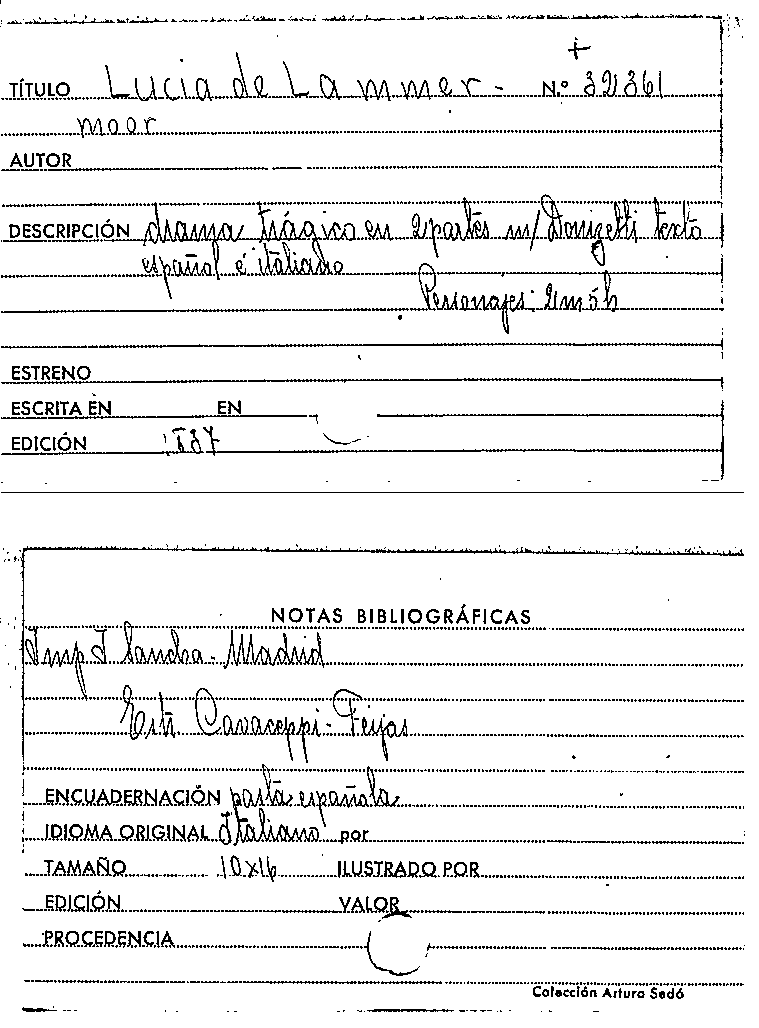 +
TÍTULO Lucia de Lammer- N.º 32361
moor
AUTOR
DESCRIPCIÓN drama trágico en 2 partes m/ Donizetti texto
español é italiano
Personajes: 2 m 5 h
ESTRENO
ESCRITA EN EN
EDICIÓN 1837
NOTAS BIBLIOGRÁFICAS
Imp I Sancha - Madrid
Estr. Cavaceppi - Feijas
ENCUADERNACIÓN pasta española
IDIOMA ORIGINAL Italiano por
TAMAÑO 10x16 ILUSTRADO POR
EDICIÓN VALOR
PROCEDENCIA
Colección Arturo Sedó